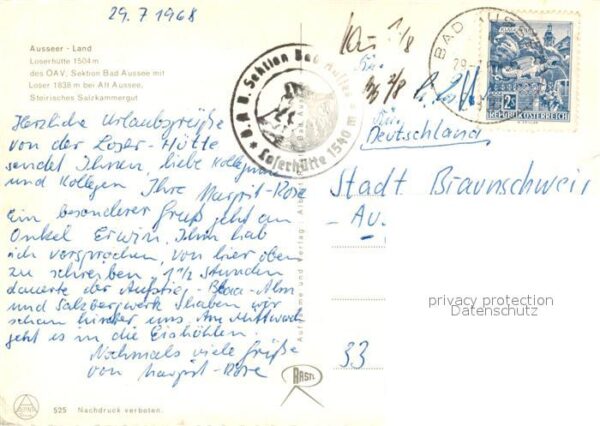 29.7.1968
Ausseer - Land
Loserhütte 1504 m
des ÖAV, Sektion Bad Aussee mit
Loser 1838 m bei Alt Aussee,
Steirisches Salzkammergut
Herzliche Urlaubsgrüße
von der Loser-Hütte
sendet Ihnen, liebe Kolleginnen
und Kollegen Ihre Margrit-Rose
Ein besonderer Gruß geht an
Onkel Erwin. Ihm hab
ich versprochen, von hier oben
zu schreiben. 1 1/2 Stunden
dauerte der Aufstieg. Blaa-Alm
und Salzbergwerk haben wir
schon hinter uns. Am Mittwoch
geht es in die Eishöhlen.
Nochmals viele Grüße
von Margrit-Rose
525 Nachdruck verboten.
Sektion Bad Aussee
Loserhütte 1540 m
Aufnahme und Verlag:
BAD AUSSEE
2 S
REPUBLIK ÖSTERREICH
1/8
2/8
Deutschland
Stadt Braunschweig
- Au
33
privacy protection
Datenschutz